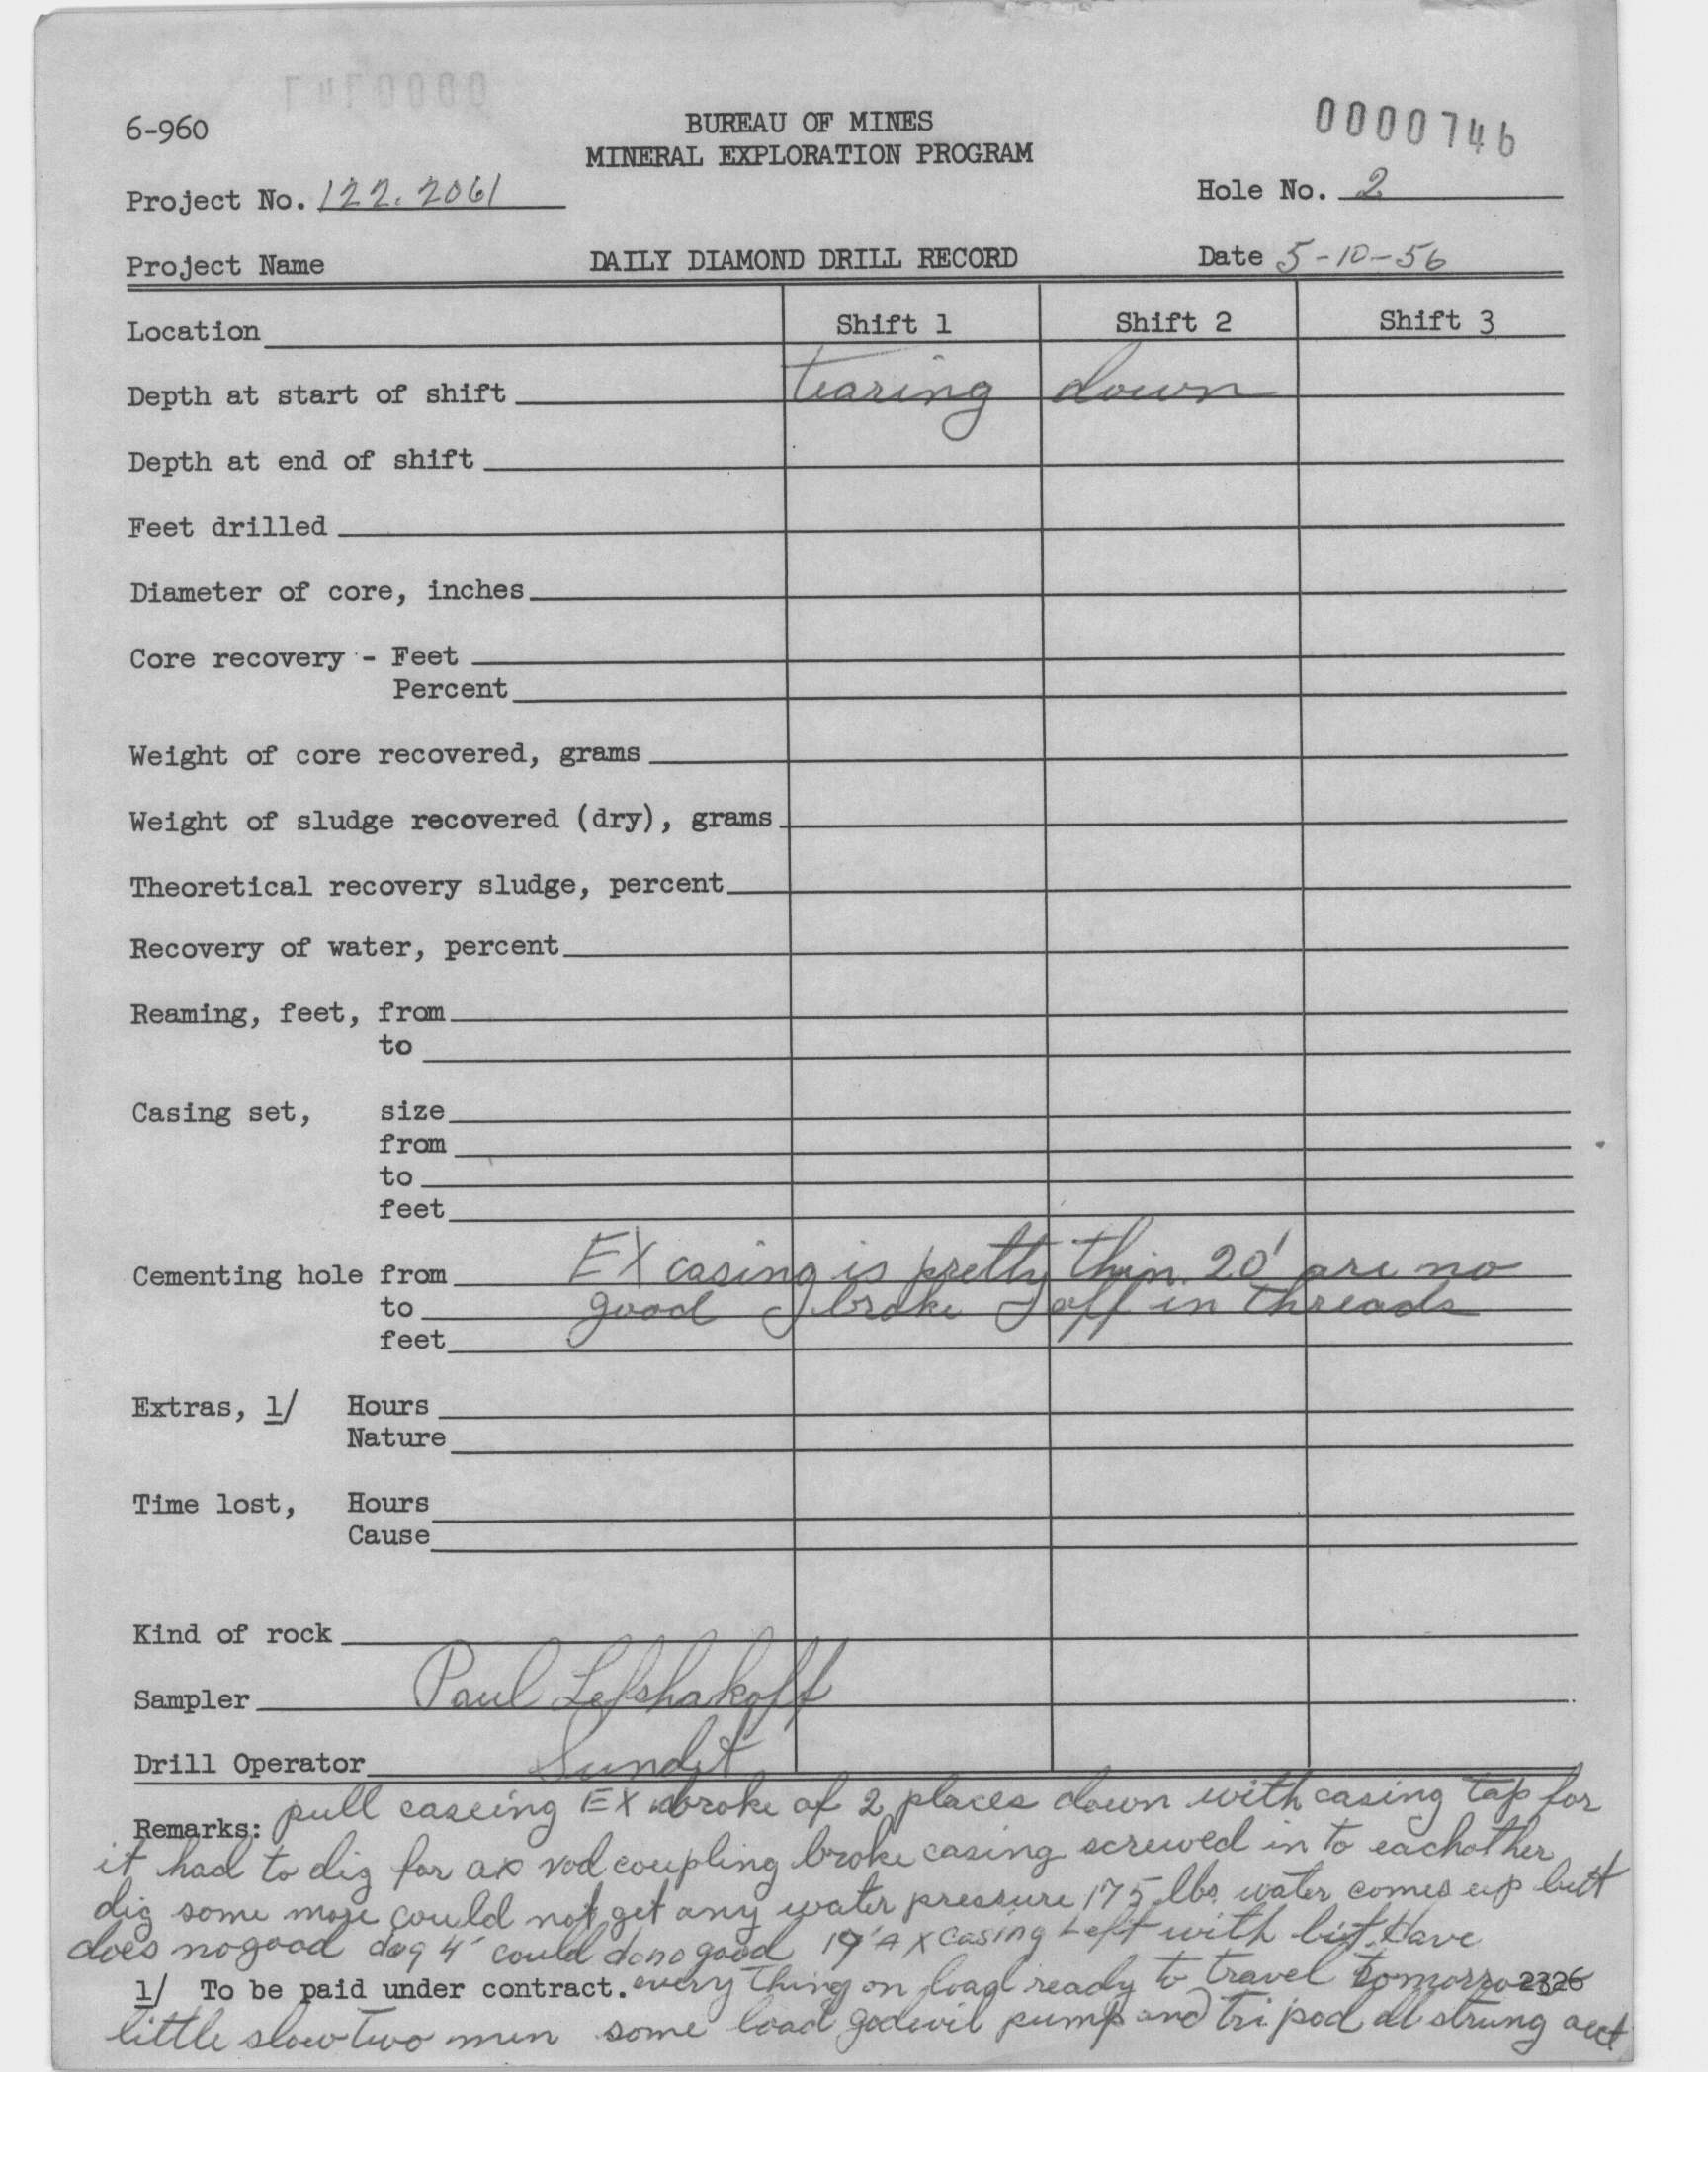 6-960
BUREAU OF MINES
MINERAL EXPLORATION PROGRAM
0000746
Project No. 122.2061
Hole No. 2
Project Name
DAILY DIAMOND DRILL RECORD
Date 5-10-56
Location Shift 1 Shift 2 Shift 3
Depth at start of shift tearing down
Depth at end of shift
Feet drilled
Diameter of core, inches
Core recovery - Feet
Percent
Weight of core recovered, grams
Weight of sludge recovered (dry), grams
Theoretical recovery sludge, percent
Recovery of water, percent
Reaming, feet, from
to
Casing set, size
from
to
feet
Cementing hole from EX casing is pretty thin. 20' are no
to good broke off in threads
feet
Extras, 1/ Hours
Nature
Time lost, Hours
Cause
Kind of rock
Sampler Paul Lefshakoff
Drill Operator Sundt
Remarks: pull caseing EX broke of 2 places down with casing tap for
it had to dig for ax rod coupling broke casing screwed in to eachother
dig some more could not get any water pressure 175 lbs. water comes up butt
does no good dog 4' could do no good 19' AX casing Left with bit. Have
1/ To be paid under contract. every thing on load ready to travel tomorro 2326
little slow two men some load godevil pump and tri pod all strung out